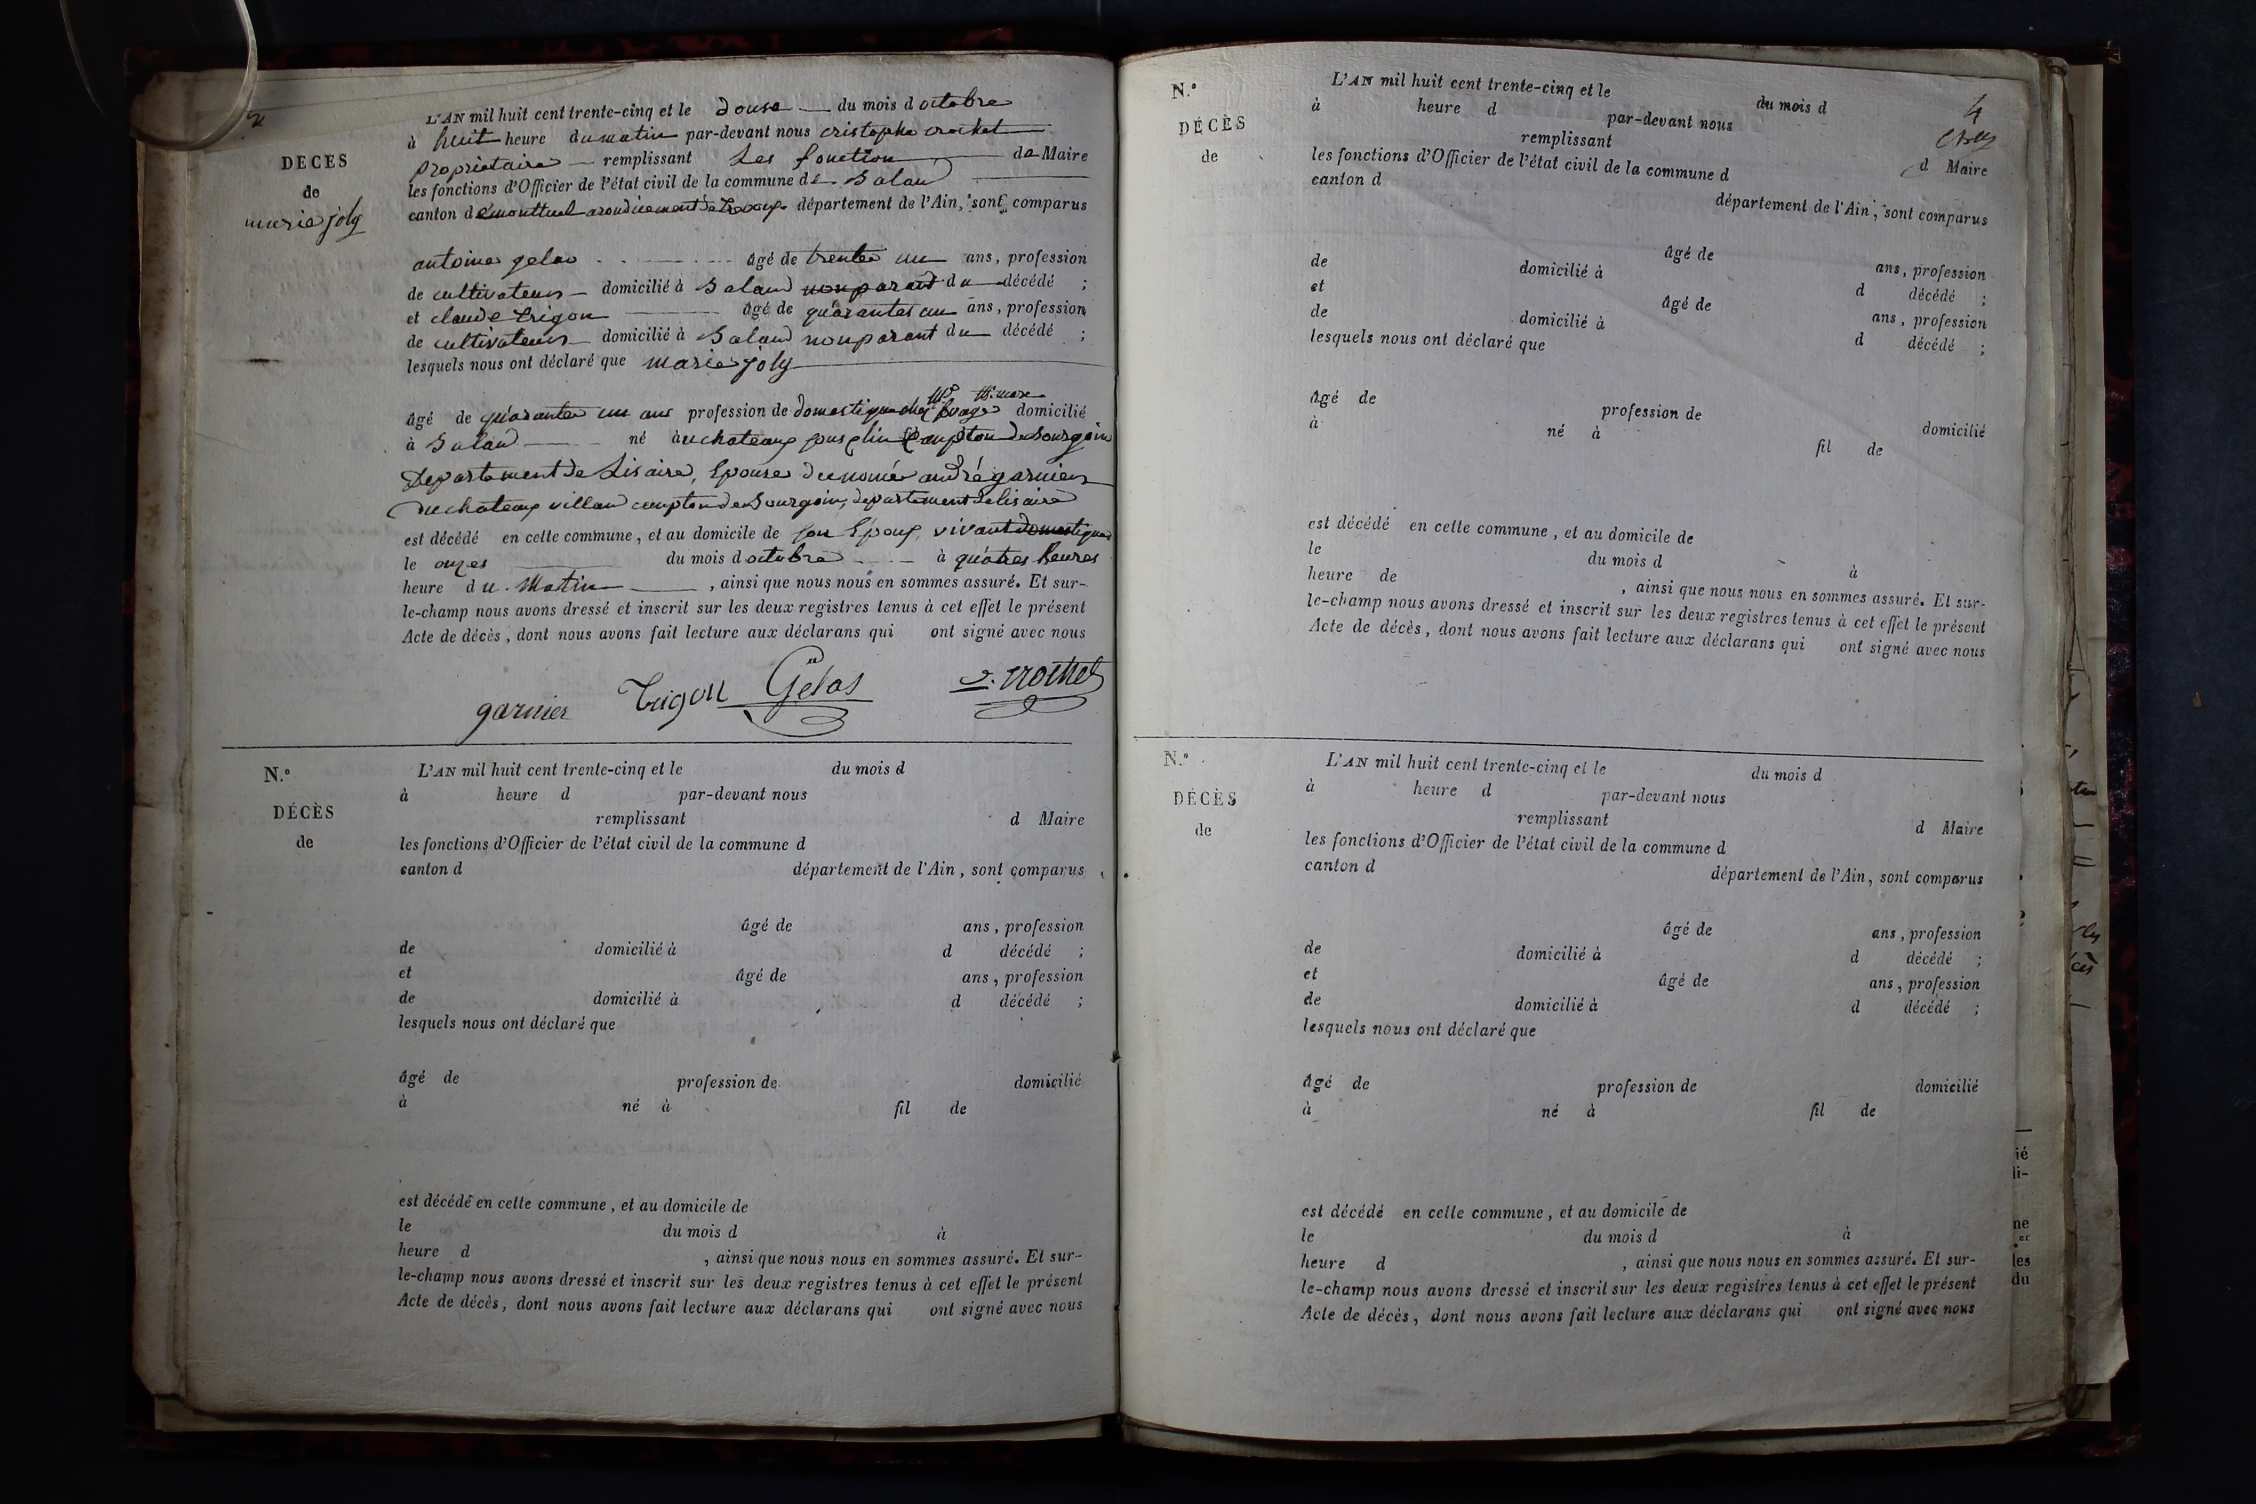 L'AN mil huit cent trente-cinq et le douse du mois d octobre
à huit heure du matin par-devant nous cristophe crochet
propriétaire remplissant Les fonction de Maire
DECES
de
marie joly
les fonctions d'Officier de l'état civil de la commune de Balan
canton de montluel arondicement de trevoux département de l'Ain, sont comparus
antoine gelas âgé de trentes un ans, profession
de cultivateur domicilié à Balan non parant du décédé ;
et claude trigon âgé de quarantes un ans, profession
de cultivateur domicilié à Balan non parant du décédé ;
lesquels nous ont déclaré que marie joly
âgé de quarante un ans profession de domestique chez domicilié
à Balan né au chateaux Bourgoin
Departement de Lisaire, Epouse du nomée andré garnier
du chateaux villan de Bourgoin, departement de lisaire
est décédé en cette commune, et au domicile de son Epoux, vivant domestique
le onzes du mois d octobre à quatres heures
heure du Matin, ainsi que nous nous en sommes assuré. Et sur-
le-champ nous avons dressé et inscrit sur les deux registres tenus à cet effet le présent
Acte de décès, dont nous avons fait lecture aux déclarans qui ont signé avec nous
garnier Trigon Gelas crochet
N.º
DÉCÈS
de
L'AN mil huit cent trente-cinq et le du mois d
à heure d par-devant nous
remplissant d Maire
les fonctions d'Officier de l'état civil de la commune d
canton d département de l'Ain, sont comparus
âgé de ans, profession
de domicilié à d décédé ;
et âgé de ans, profession
de domicilié à d décédé ;
lesquels nous ont déclaré que
âgé de profession de domicilié
à né à fil de
est décédé en cette commune, et au domicile de
le du mois d à
heure d , ainsi que nous nous en sommes assuré. Et sur-
le-champ nous avons dressé et inscrit sur les deux registres tenus à cet effet le présent
Acte de décès, dont nous avons fait lecture aux déclarans qui ont signé avec nous
4
N.º
DÉCÈS
de
L'AN mil huit cent trente-cinq et le du mois d
à heure d par-devant nous
remplissant d Maire
les fonctions d'Officier de l'état civil de la commune d
canton d département de l'Ain, sont comparus
âgé de ans, profession
de domicilié à d décédé ;
et âgé de ans, profession
de domicilié à d décédé ;
lesquels nous ont déclaré que
âgé de profession de domicilié
à né à fil de
est décédé en cette commune, et au domicile de
le du mois d à
heure de , ainsi que nous nous en sommes assuré. Et sur-
le-champ nous avons dressé et inscrit sur les deux registres tenus à cet effet le présent
Acte de décès, dont nous avons fait lecture aux déclarans qui ont signé avec nous
N.º
DÉCÈS
de
L'AN mil huit cent trente-cinq et le du mois d
à heure d par-devant nous
remplissant d Maire
les fonctions d'Officier de l'état civil de la commune d
canton d département de l'Ain, sont comparus
âgé de ans, profession
de domicilié à d décédé ;
et âgé de ans, profession
de domicilié à d décédé ;
lesquels nous ont déclaré que
âgé de profession de domicilié
à né à fil de
est décédé en cette commune, et au domicile de
le du mois d à
heure d , ainsi que nous nous en sommes assuré. Et sur-
le-champ nous avons dressé et inscrit sur les deux registres tenus à cet effet le présent
Acte de décès, dont nous avons fait lecture aux déclarans qui ont signé avec nous